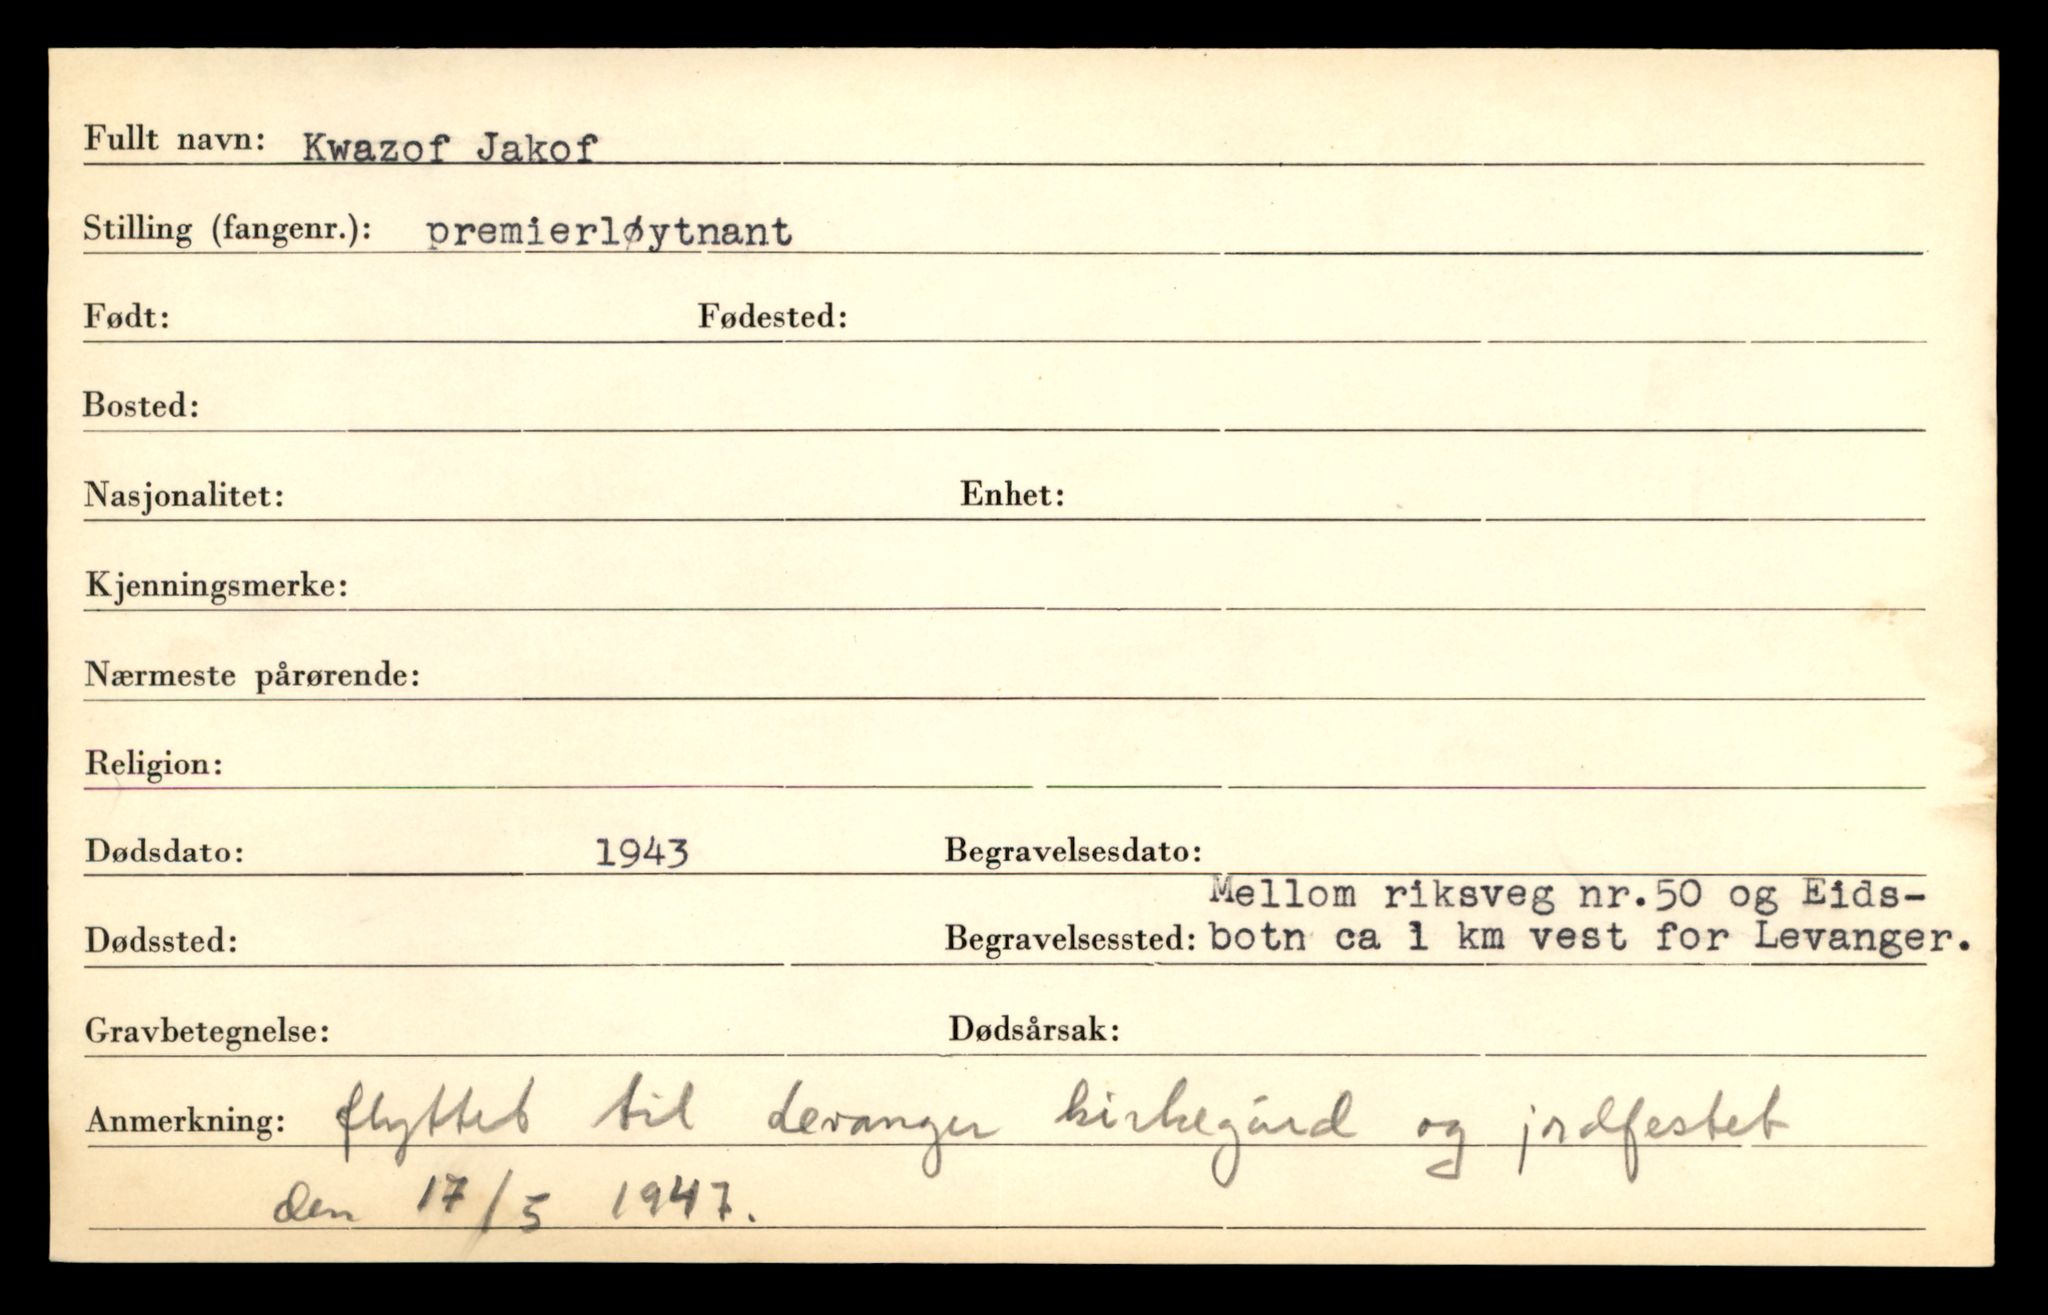 Fullt navn: Kwazof Jakof
Stilling (fangenr.): premierløytnant
Født: Fødested:
Bosted:
Nasjonalitet: Enhet:
Kjenningsmerke:
Nærmeste pårørende:
Religion:
Dødsdato: 1943 Begravelsesdato:
Mellom riksveg nr.50 og Eids-
Dødssted: Begravelsessted: botn ca 1 km vest for Levanger.
Gravbetegnelse: Dødsårsak:
Anmerkning: flyttet til Levanger kirkegård og jordfestet
den 17/5 1947.